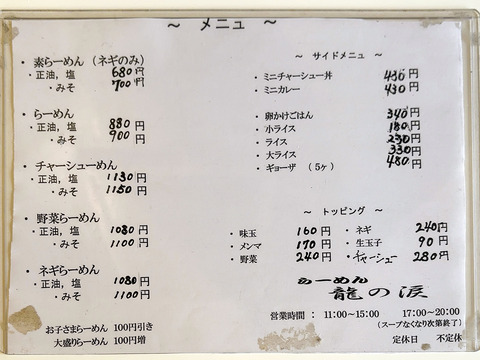 ～ メニュー ～
・素らーめん (ネギのみ)
・正油，塩 680円
・みそ 700円
・らーめん
・正油，塩 880円
・みそ 900円
・チャーシューめん
・正油，塩 1130円
・みそ 1150円
・野菜らーめん
・正油，塩 1080円
・みそ 1100円
・ネギらーめん
・正油，塩 1080円
・みそ 1100円
お子さまらーめん 100円引き
大盛りらーめん 100円増
～ サイドメニュー ～
・ミニチャーシュー丼 430円
・ミニカレー 430円
・卵かけごはん 340円
・小ライス 180円
・ライス 230円
・大ライス 330円
・ギョーザ (5ヶ) 480円
～ トッピング ～
・味玉 160円 ・ネギ 240円
・メンマ 170円 ・生玉子 90円
・野菜 240円 ・チャーシュー 280円
らーめん
龍の涙
営業時間 : 11:00～15:00 17:00～20:00
(スープなくなり次第終了)
定休日 不定休